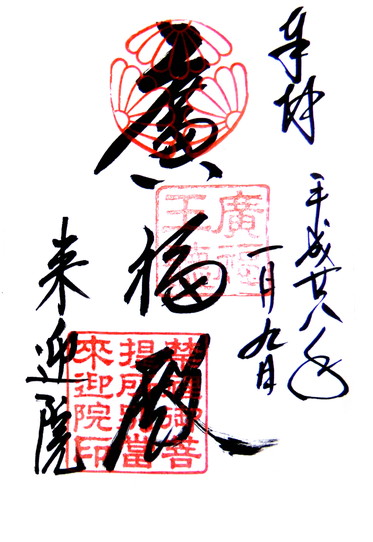 奉拝
平成廿八年
一月九日
廣福殿
来迎院
廣福
王殿
禁裡御菩
提所別當
来迎院印